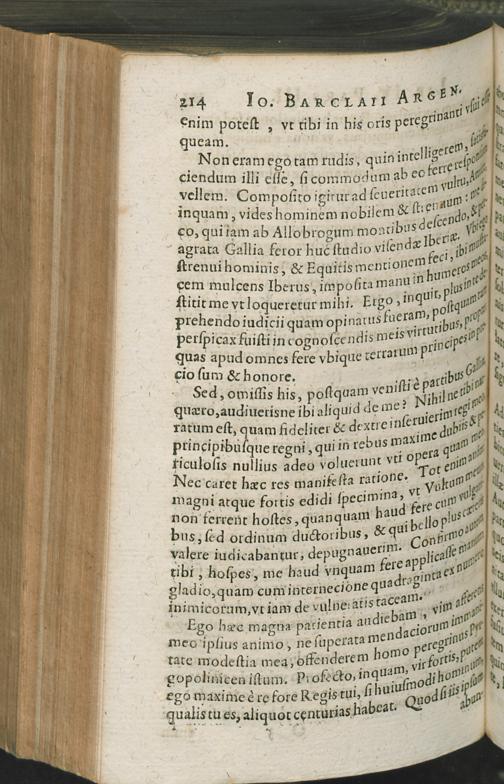 214 IO. BARCLAII ARGEN.
enim potest, vt tibi in his oris peregrinanti vsui esse
queam.
Non eram ego tam rudis, quin intelligerem, satis
ciendum illi esse, si commodum ab eo ferre responsum
vellem. Composito igitur ad seueritatem vultu, Amice,
inquam, vides hominem nobilem & strenuum: me
co, qui iam ab Allobrogum montibus descendo, & per
agrata Gallia feror huc studio visendæ Iberiæ. Vbi ego
strenui hominis, & Equitis mentionem feci, ibi
cem mulcens Iberus, imposita manu in humeros meos,
stitit me vt loqueretur mihi. Ergo, inquit, plus in te de-
prehendo iudicii quam opinatus fueram, postquam tam
perspicax fuisti in cognoscendis meis virtutibus, propter
quas apud omnes fere vbique terrarum principes in pre-
cio sum & honore.
Sed, omissis his, postquam venisti è partibus Galliæ,
quæro, audiuerisne ibi aliquid de me? Nihil ne tibi nar-
ratum est, quam fideliter & dextre inseruierim regi meo
principibusque regni, qui in rebus maxime dubiis & pe-
riculosis nullius adeo voluerunt vti opera quam mea.
Nec caret hæc res manifesta ratione. Tot enim animi
magni atque fortis edidi specimina, vt vultum meum
non ferrent hostes, quanquam haud fere cum vulgari-
bus, sed ordinum ductoribus, & qui bello plus cæteris
valere iudicabantur, depugnauerim. Confirmo autem
tibi, hospes, me haud vnquam fere applicasse manum
gladio, quam cum internecione quadraginta ex numero
inimicorum, vt iam de vulneratis taceam.
Ego hæc magna patientia audiebam, vim afferens
meo ipsius animo, ne superata mendaciorum immani-
tate modestia mea, offenderem homo peregrinus Pyr-
gopolinicen istum. Profecto, inquam, vir fortis, putem
ego maxime è re fore Regis tui, si huiusmodi hominum,
qualis tu es, aliquot centurias habeat. Quod si iis ipsum
abun-